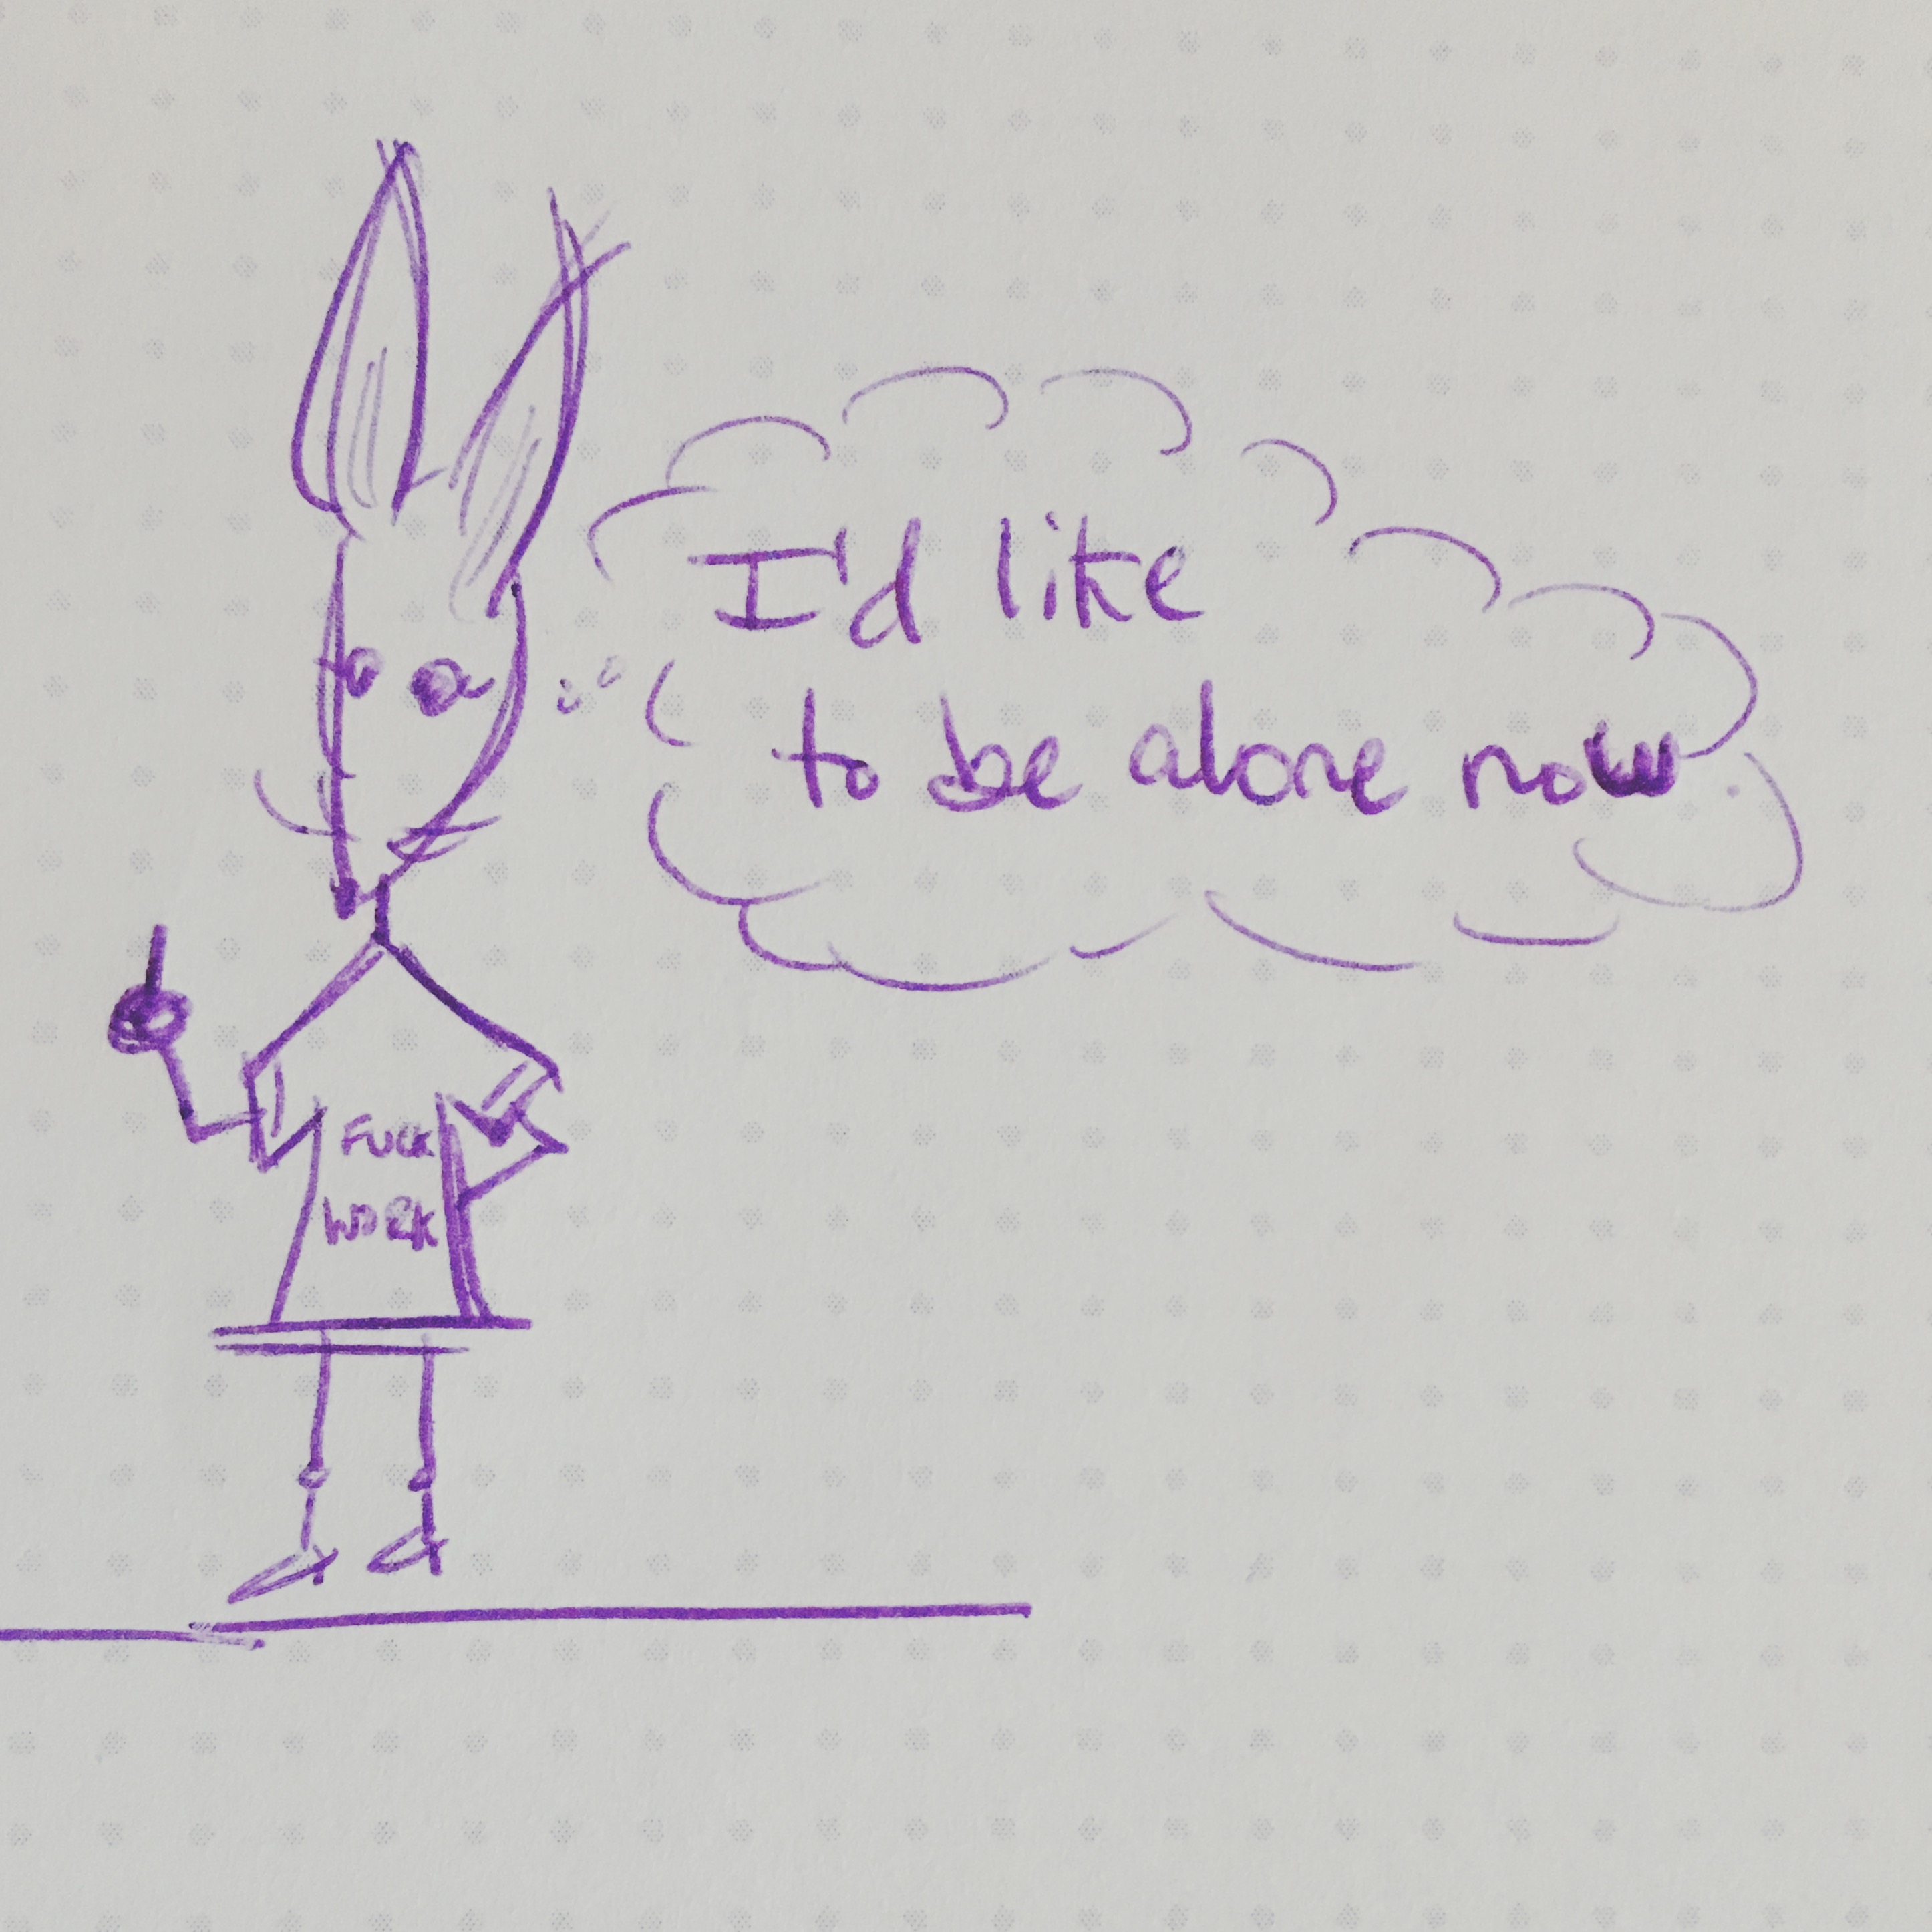 I'd like
to be alone now.
FUCK
WORK